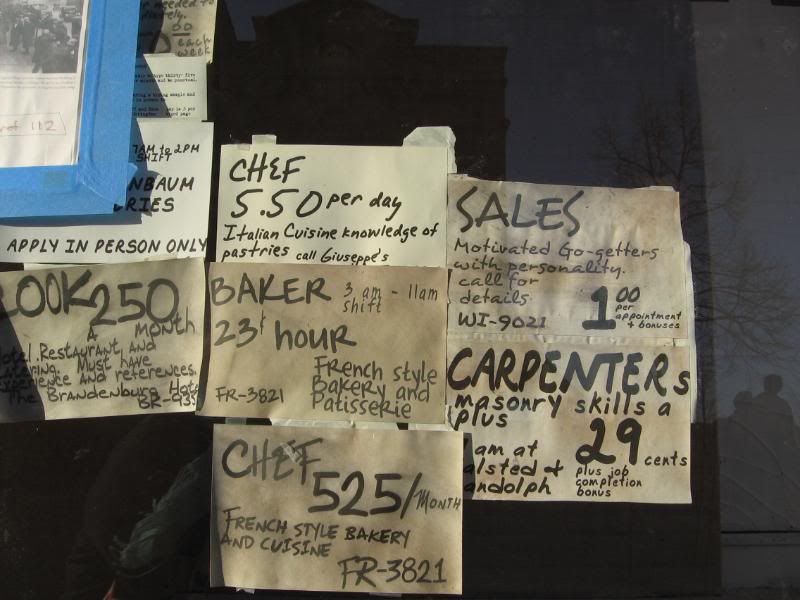 needed to
each
week
7AM to 2PM
SHIFT
NBAUM
RIES
APPLY IN PERSON ONLY
CHEF
5.50 per day
Italian Cuisine knowledge of
pastries call Giuseppe's
SALES
Motivated Go-getters
with personality.
call for
details
WI-9021
1.00
per
appointment
+ bonuses
OOK 250
A MONTH
otel. Restaurant and
tering. Must have
xperience and references.
The Brandenburg Hote
BR-935
BAKER 3 am - 11am
shift
23¢ hour
French style
Bakery and
Patisserie
FR-3821
CARPENTERS
masonry skills a
plus
29 cents
plus job
completion
bonus
am at
alsted &
andolph
CHEF
525/MONTH
FRENCH STYLE BAKERY
AND CUISINE
FR-3821